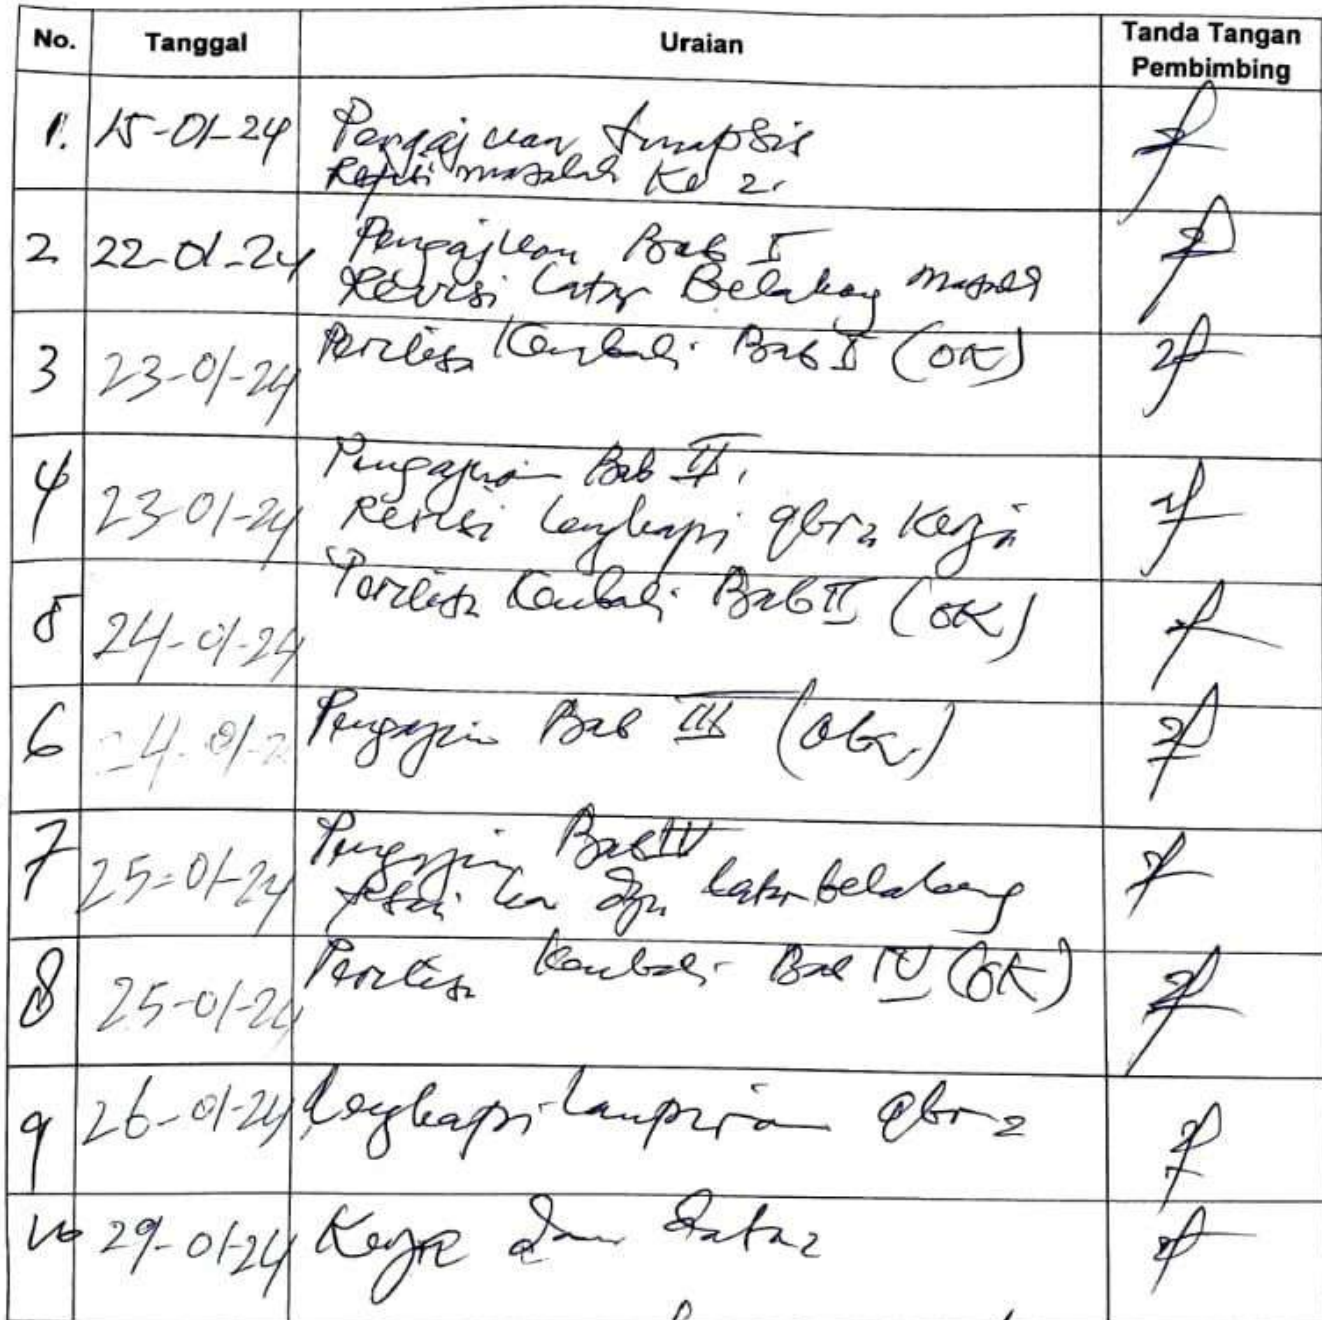 No. Tanggal Uraian Tanda Tangan
Pembimbing
1. 15-01-24 Pengajuan Sinopsis
Revisi masalah Ke 2.
2 22-01-24 Pengajuan Bab I
Revisi Latar Belakang masalah
3 23-01-24 Periksa Kembali Bab I (OK)
4 23-01-24 Pengajuan Bab II.
Revisi lengkapi Kerja
5 24-01-24 Periksa Kembali Bab II (OK)
6 24-01-2 Pengajuan Bab III
7 25-01-24 Pengajuan Bab IV
latar belakang
8 25-01-24 Periksa Kembali Bab IV (OK)
9 26-01-24 Lengkapi lampiran
10 29-01-24 Kerja dan